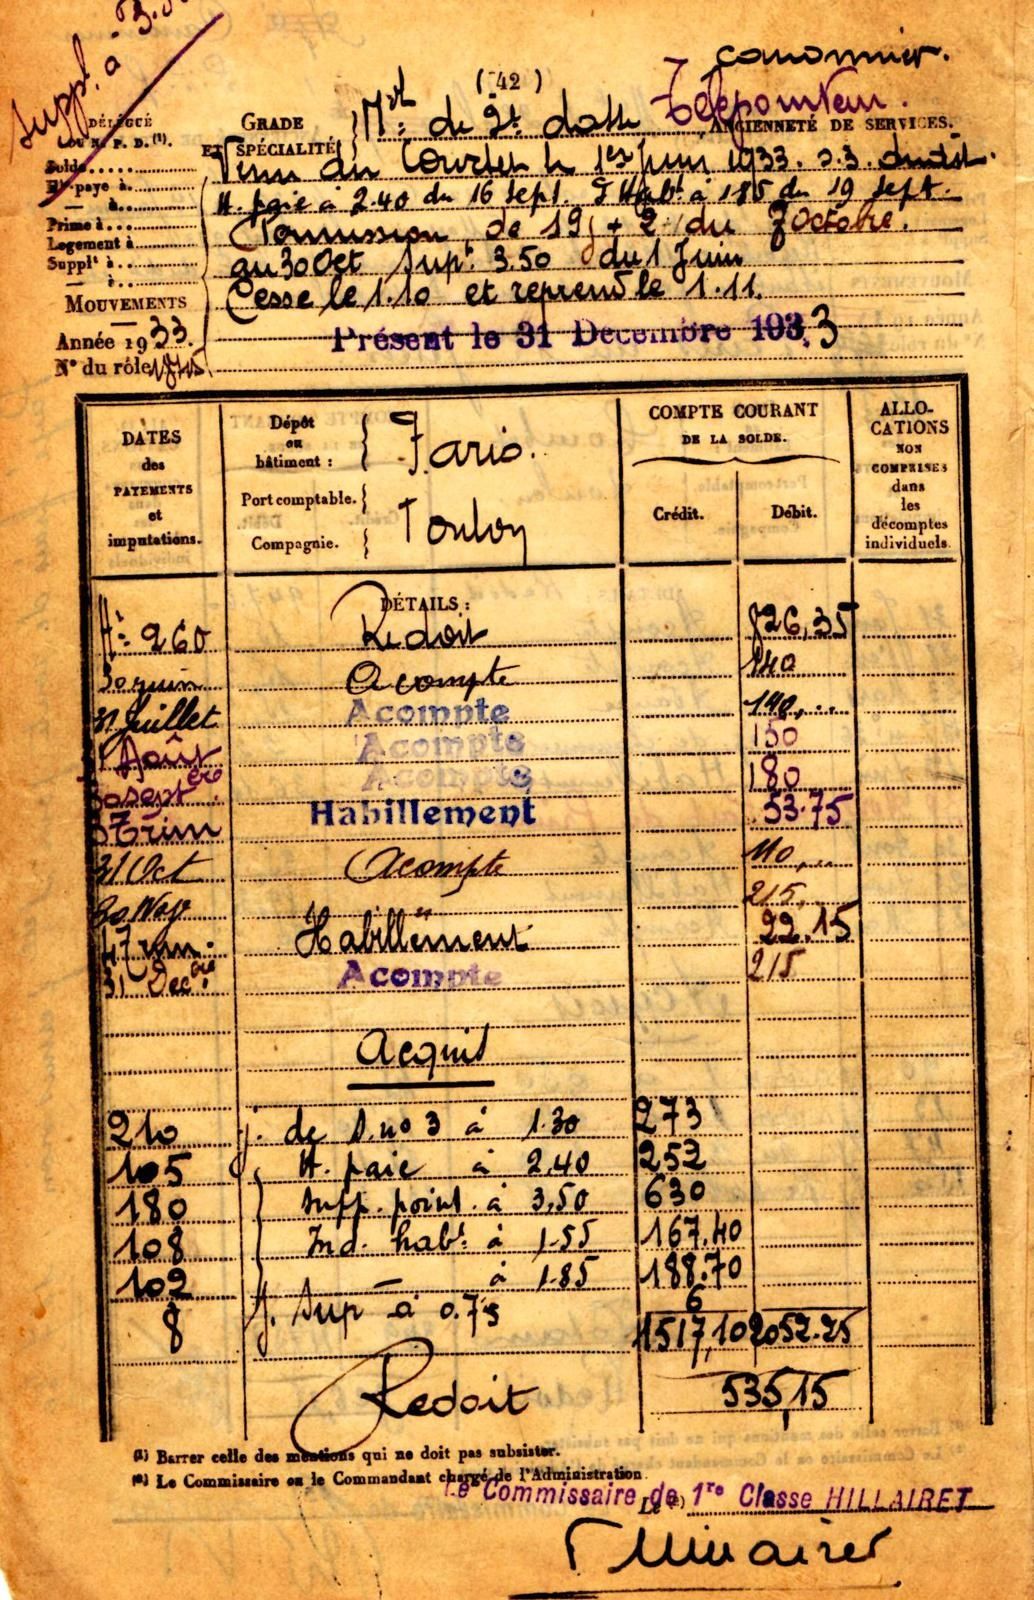 Suppl. à 3.50
canonnier.
(42)
DÉLÉGUÉ
OU N. P. D. (1).
GRADE
ET SPÉCIALITÉ
Mot: de 2e classe Télépointeur.
ANCIENNETÉ DE SERVICES.
Venu du Courbet le 1er Juin 1933. S.3.
Solde
H. paie à 2.40 du 16 sept. I Habt à 1.85 du 19 sept.
Hte-paye à
— à
Prime à
Permission de 19j + 2 du 7 Octobre.
Logement à
au 30 Oct Supt. 3.50 du 1 Juin
Supplt à
— à
Cesse le 1.10 et reprend le 1.11.
MOUVEMENTS
Année 1933.
Présent le 31 Décembre 1933
N° du rôle
DATES
des
PAYEMENTS
et
imputations.
Dépôt
ou
bâtiment :
Paris.
Port comptable.
Toulon
Compagnie.
COMPTE COURANT
DE LA SOLDE.
Crédit.
Débit.
ALLO-
CATIONS
NON
COMPRISES
dans
les
décomptes
individuels.
DÉTAILS :
Ft: 260 Redoit 826,35
30 juin Acompte 140
31 Juillet Acompte 140,..
Août Acompte 150
30 septbre Acompte 180
3 Trim Habillement 53.75
31 Oct Acompte 110,..
30 Nov Habillement 215,
4 Trim. Acompte 22.15
31 Decbre 215
Acquit
210 j. de S. no 3 à 1.30 273
105 H. paie à 2,40 252
180 Supp. point. à 3,50 630
108 Ind. habt: à 1.55 167.40
102 — à 1.85 188.70
8 J. Sup — à 0.75 6
1517,10 2052.25
Redoit 535,15
(1) Barrer celle des mentions qui ne doit pas subsister.
(2) Le Commissaire ou le Commandant chargé de l'Administration.
Le (2)
Le Commissaire de 1re Classe HILLAIRET